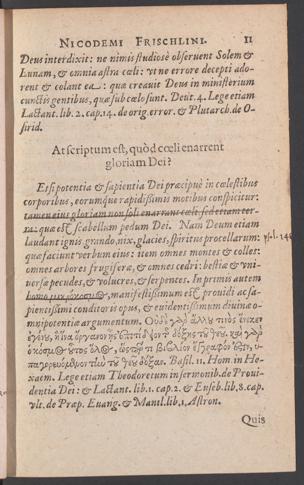 NICODEMI FRISCHLINI. 11
Deus interdixit: ne nimis studiosè obseruent Solem &
Lunam, & omnia astra cœli: vt ne errore decepti ado-
rent & colant ea: quæ creauit Deus in ministerium
cunctis gentibus, quæ sub cœlo sunt. Deut. 4. Lege etiam
Lactant. lib. 2. cap. 14. de orig. error. & Plutarch. de O-
sirid.
At scriptum est, quòd cœli enarrent
gloriam Dei?
Etsi potentia & sapientia Dei præcipuè in cœlestibus
corporibus, eorumque rapidissimis motibus conspicitur:
tamen eius gloriam non soli enarrant cœli: sed etiam ter-
ra: quæ est scabellum pedum Dei. Nam Deum etiam
laudant ignis grando, nix, glacies, spiritus procellarum:
quæ faciunt verbum eius: item omnes montes & colles:
omnes arbores frugiferæ, & omnes cedri: bestiæ & vni-
uersa pecudes, & volucres, & serpentes. In primis autem
homo μικρόκοσμος, manifestissimum est prouidi ac sa-
pientissimi conditoris opus, & euidentissimum diuinæ o-
mnipotentiæ argumentum.
Basil. 11. Hom in He-
xaem. Lege etiam Theodoretum in sermonib. de Proui-
dentia Dei: & Lactant. lib. 1. cap. 2. & Euseb. lib. 8. cap.
vlt. de Præp. Euang. & Manil. lib. 1. Astron.
Quis